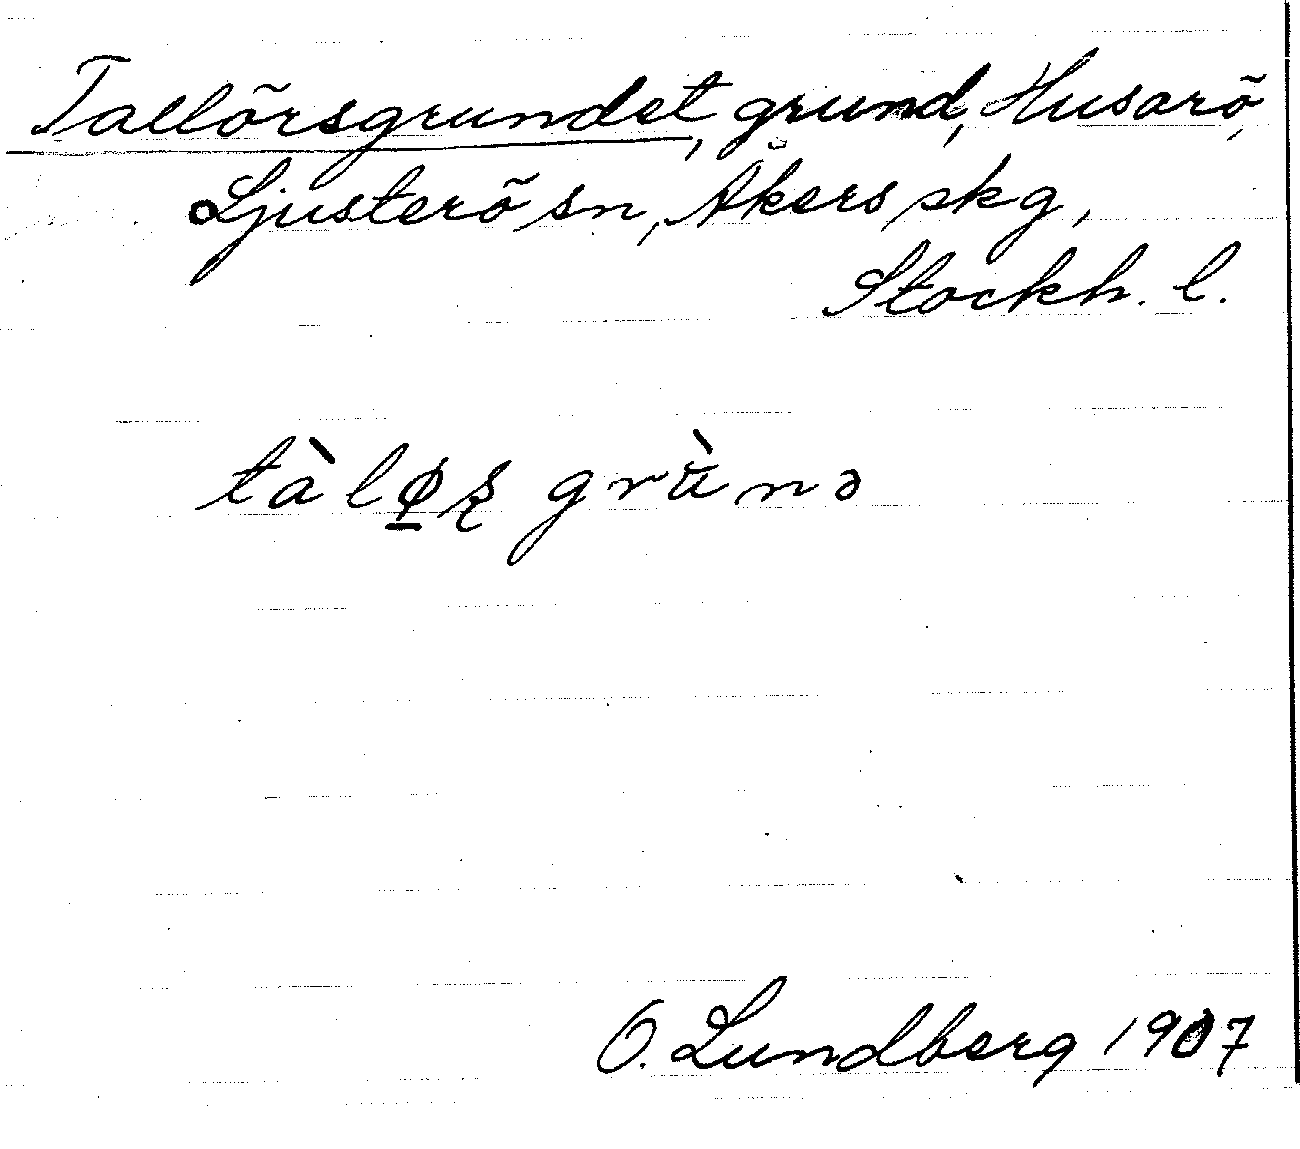 Tallörsgrundet, grund, Husarö,
Ljusterö sn, Åkers skg,
Stockh. l.
tàlø̱ʂ grùnə
O. Lundberg 1907